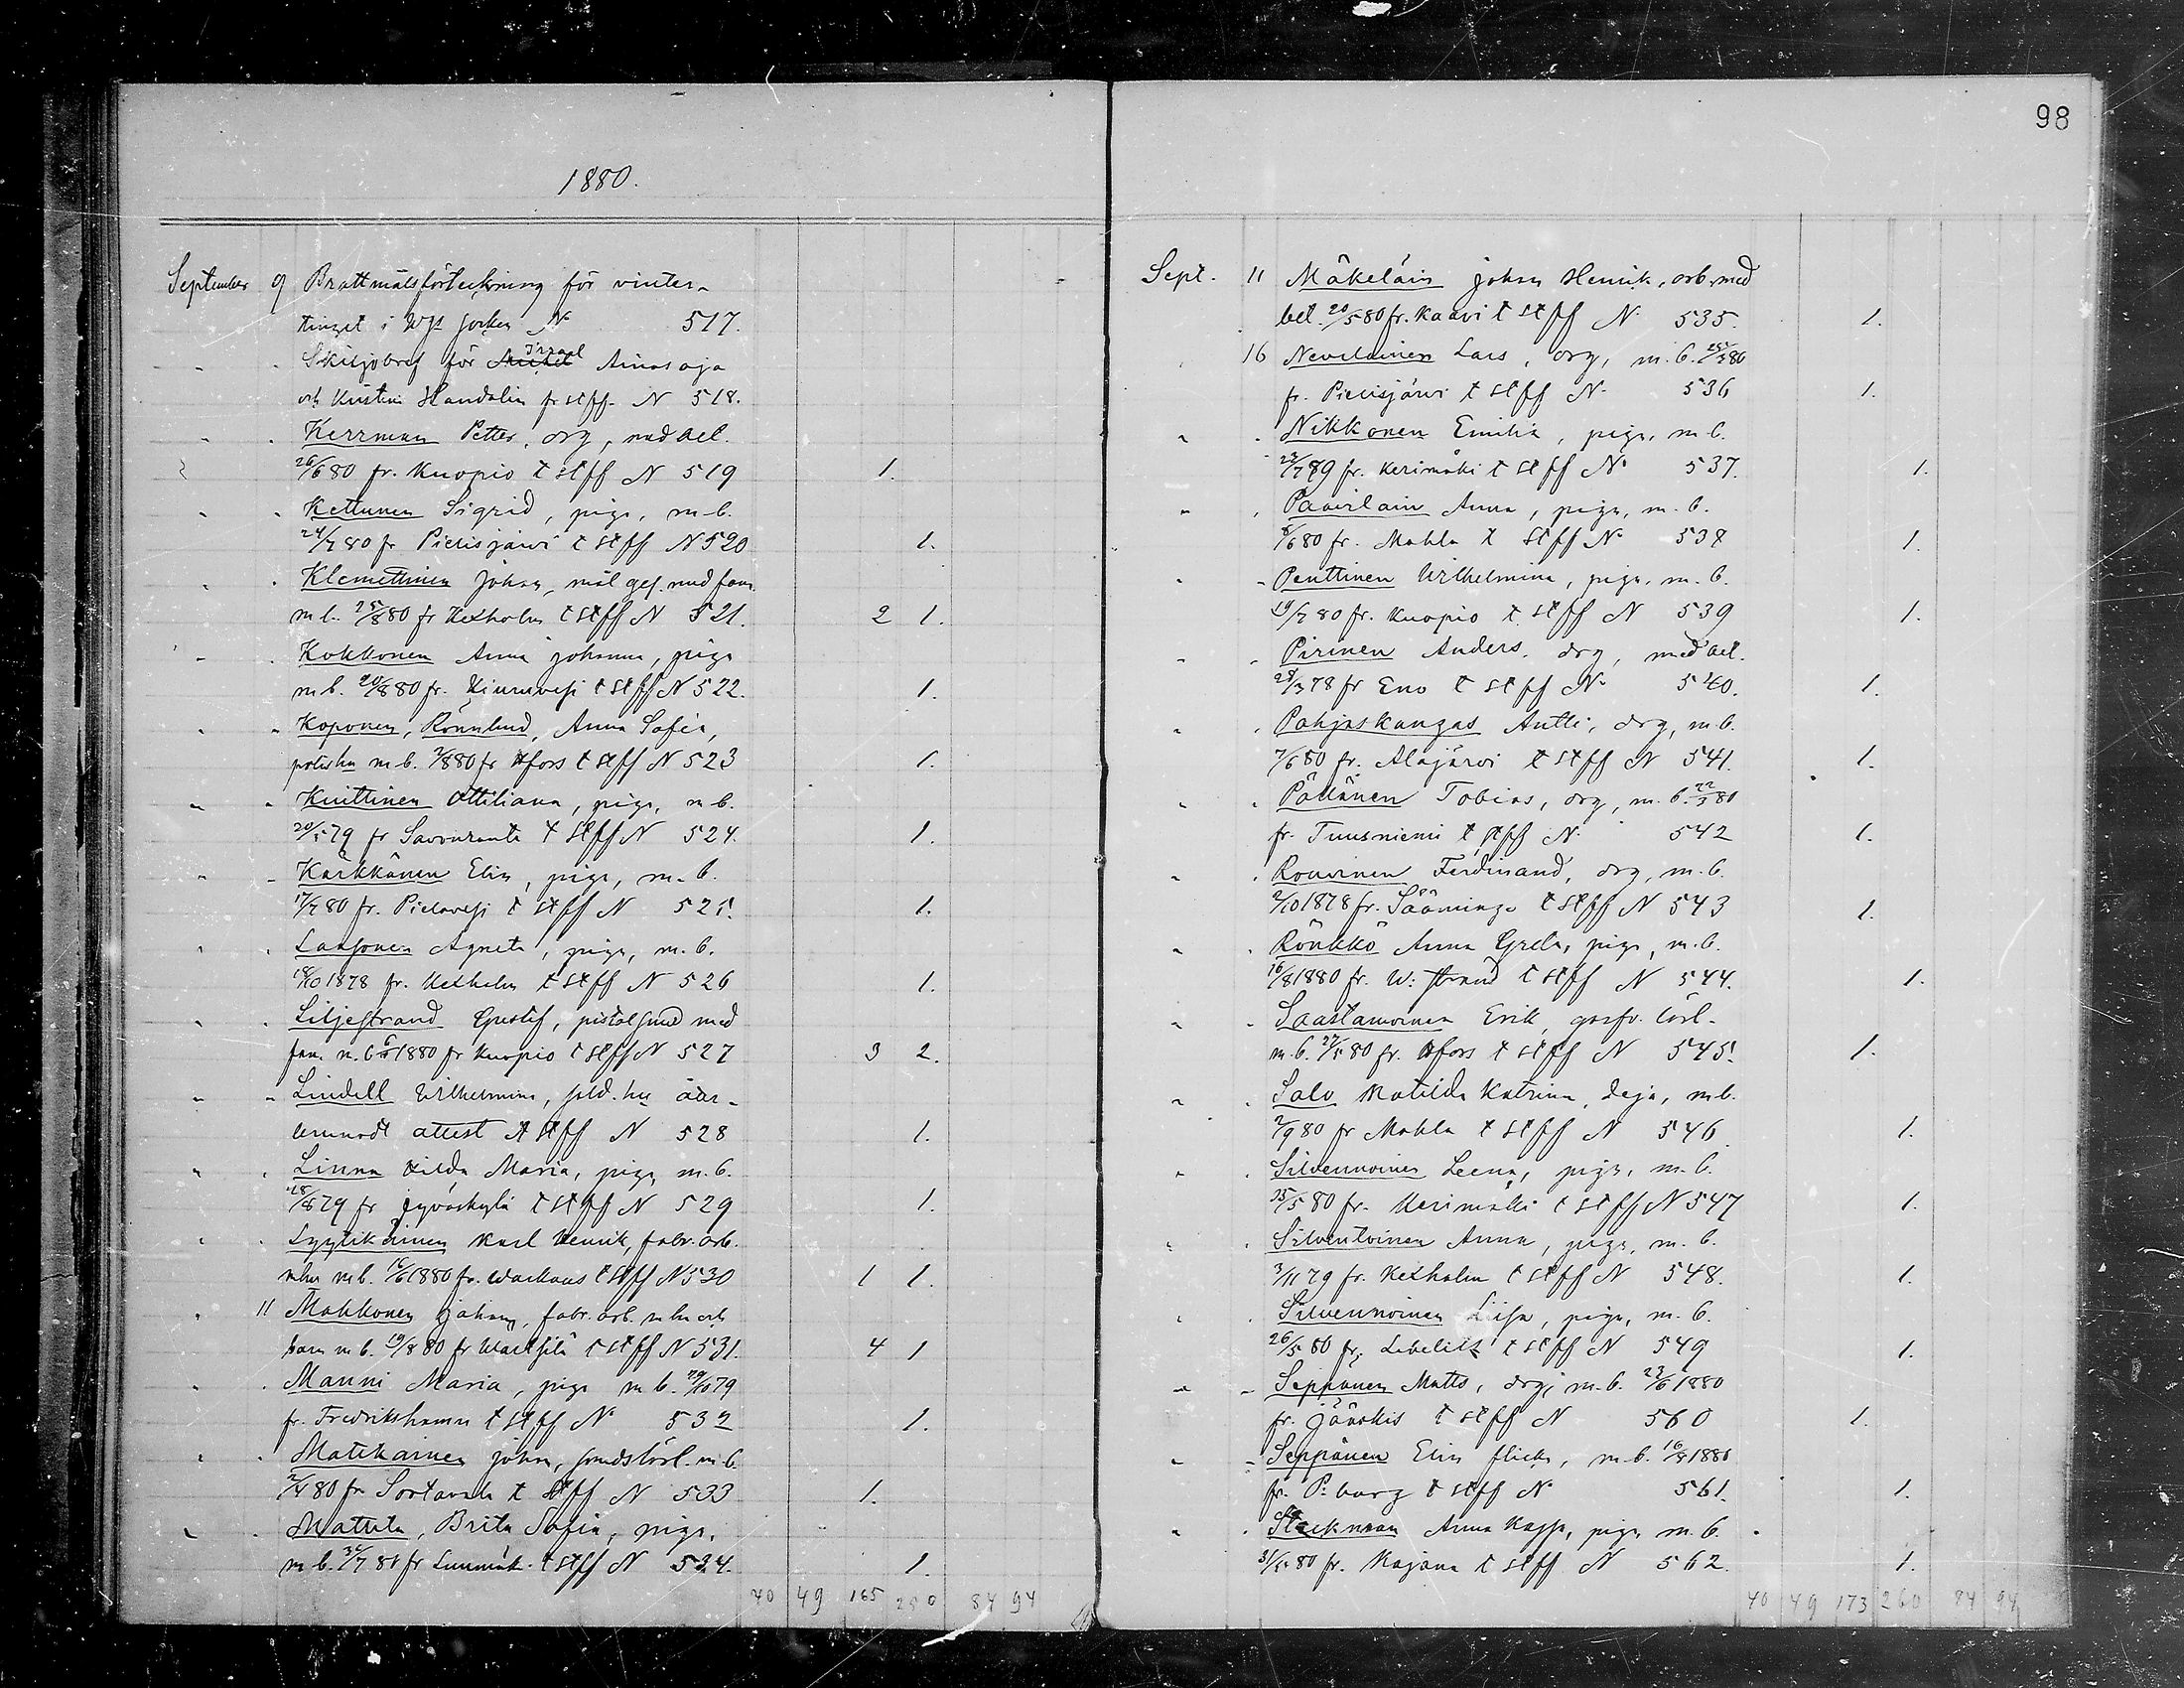 98
1880.
September 9 Brottmålsförteckning för vinter-
tinget i N 517.
" " Skiljobref för Israel Ainasoja
och Kristina Handolin fr stff N 518.
" " Kerrman Petter, drg, med bet.
26/6 80 fr. Kuopio t stff N 519 1.
" " Kettunen Sigrid, piga, m.b.
24/7 80 fr Pielisjärvi t stff N 520 1.
" " Klemettinen Johan, mål.ges. med fam.
m b. 25/8 80 fr Kexholm t stff N 521. 2 1.
" " Kokkonen Anna Johanna, piga
m b. 20/8 80 fr. Kiuruvesi t stff N 522. 1.
" " Koponen, Rönnlund, Anna Sofia,
m b. 7/8 80 fr Hfors t stff N 523 1.
" " Knittinen Ottiliana, piga, m b.
20/5 79 fr Savonranta t stff N 524. 1.
" " Karkkånen Elin, piga, m. b.
17/7 80 fr. Pielavesi t stff N 525. 1.
" " Laasonen Agneta, piga, m. b.
18/10 1878 fr. Kexholm t stff N 526 1.
" " Liljestrand Gustaf, pistolsmed med
fam. m. b 1880 fr Kuopio t stff N 527 3 2.
" " Lindell Wilhelmina, sold. hu åter-
lemnadt attest t stff N 528 1.
" " Linna Hilda Maria, piga m. b.
28/8 79 fr Jyväskylä t stff N 529 1.
" " Lyytikäinen Karl Henrik, fabr. arb.
mhu m b. 16/6 1880 fr. Warkaus t stff N 530 1 1.
" 11 Makkonen Johan, fabr. arb. m hu och
barn m b. 19/8 80 fr Wärtsilä t stff N 531. 4 1
" " Manni Maria, piga m b. 29/10 79
fr. Fredrikshamn t stff N 532 1.
" " Matikainen Johan, m b.
80 fr Sortavala t stff N 533 1.
" " Mattila, Brita Sofia, piga,
m b. fr Lumivaara t stff N 534. 1.
40 49 165 250 84 94
Sept. 11 Mäkeläin Johan Henrik, arb. med
bet. 20/5 80 fr. Kaavi t stff N 535. 1.
" 16 Nevalainen Lars, drg, m. b. 80
fr. Pielisjärvi t stff N 536 1.
" " Nikkonen Emilia, piga, m b.
79 fr. Kerimäki t stff N 537. 1.
" " Paavilain Anna, piga, m. b.
6/6 80 fr. Mohla t stff N 538 1.
" " Penttinen Wilhelmina, piga, m. b.
19/7 80 fr. Kuopio t stff N 539 1.
" " Pirinen Anders, drg, med bet.
25/3 78 fr Eno t stff N 540. 1.
" " Pohjaskangas Antti, drg, m b.
7/6 80 fr. Alajärvi t stff N 541. 1.
" " Pöllänen Tobias, drg, m. b. 22/3 80
fr. Tuusniemi t stff N 542 1.
" " Rouvinen Ferdinand, drg, m. b.
2/10 1878 fr. Sääminge t stff N 543 1.
" " Rönkkö Anna Greta, piga, m. b.
16/8 1880 fr. W: strand t stff N 544. 1.
" " Saastamoinen Erik, garfv. lärl.
m. b. 27/5 80 fr. Hfors t stff N 545. 1.
" " Salo Matilda Katrina, deja, m b.
2/9 80 fr Mohla t stff N 546. 1.
" " Silvennoinen Leena, piga, m. b.
25/5 80 fr. Kerimäki t stff N 547 1.
" " Silventoinen Anna, piga, m. b.
3/11 79 fr. Kexholm t stff N 548. 1.
" " Silvennoinen Liisa, piga, m. b.
26/5 80 fr. Libelits t stff N 549 1.
" " Seppänen Matts, drg, m. b. 23/6 1880
fr. Jääskis t stff N 560 1.
" " Seppänen Elin flicka, m. b. 1880
fr. P:burg t stff N 561. 1.
" " Anna Kajsa, piga, m. b.
31/5 80 fr. Kajana t stff N 562. 1.
40 49 173 260 84 94